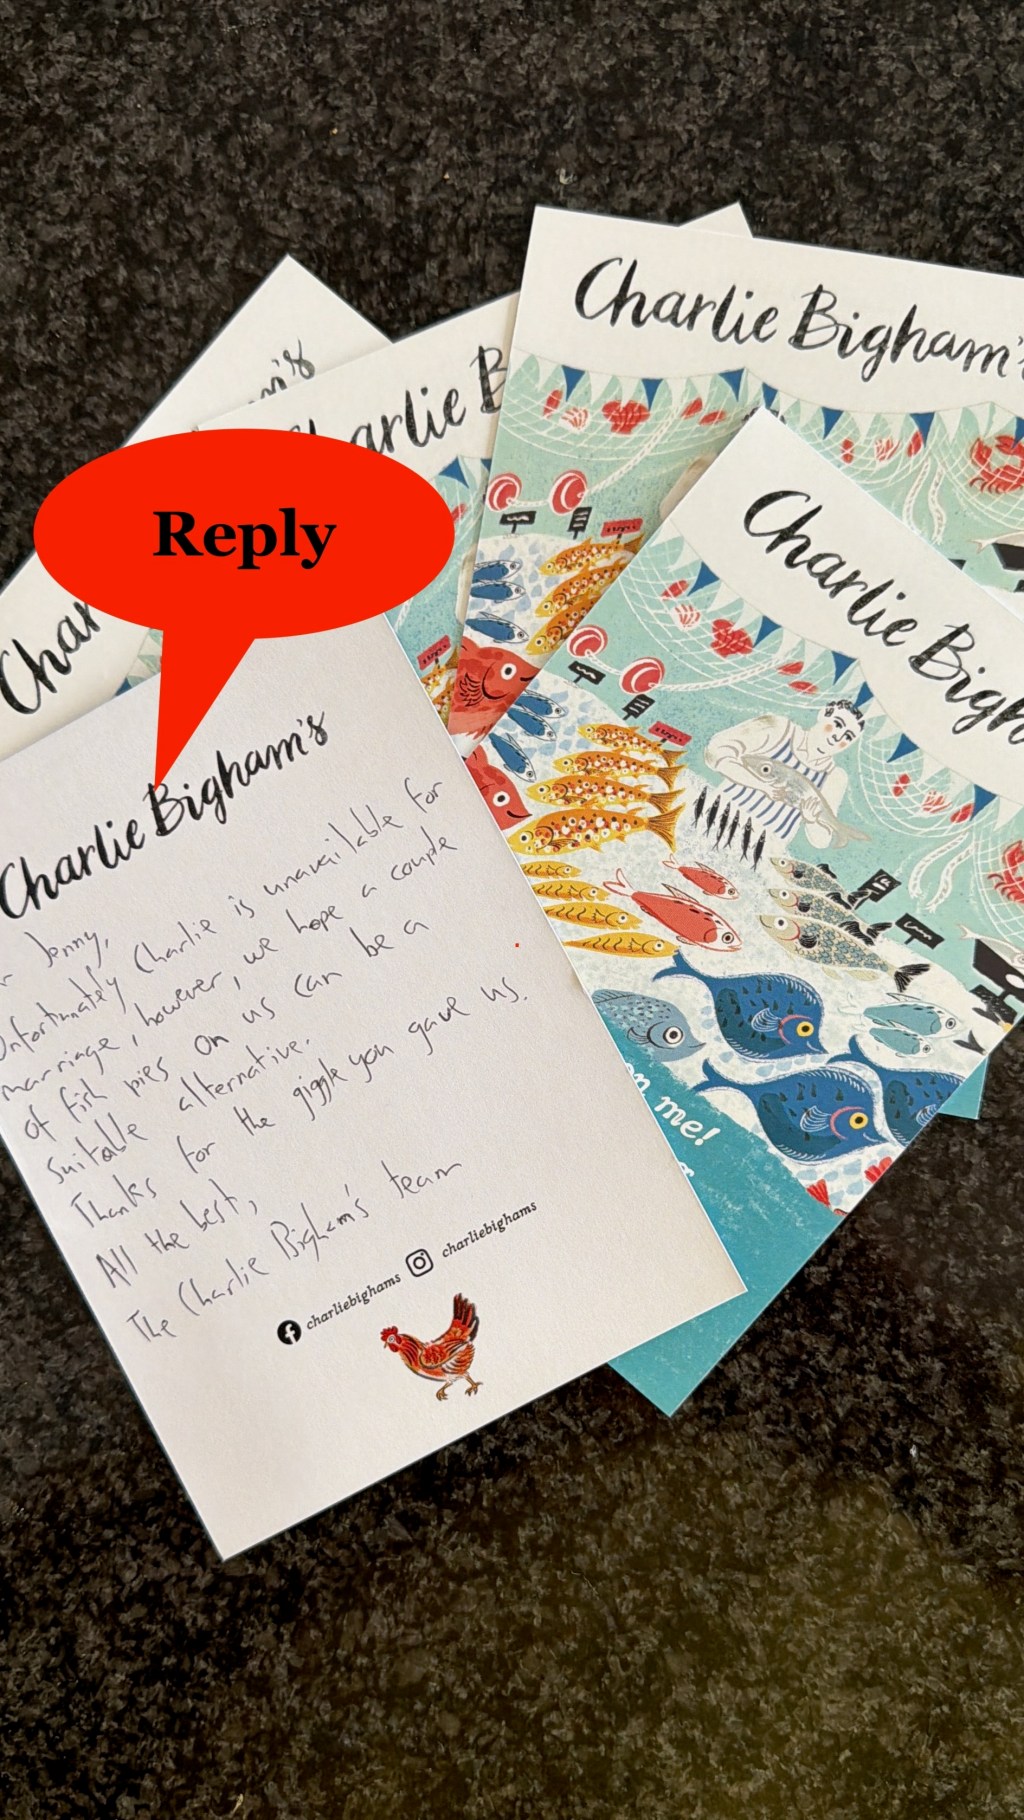 Charlie Bigham's
Charlie B
am's
Char
Reply
Charlie Bigh
Charlie Bigham's
Jenny,
Unfortunately Charlie is unavailable for
marriage, however, we hope a couple
of fish pies on us can be a
suitable alternative.
Thanks for the giggle you gave us.
All the best,
The Charlie Bigham's team
charliebighams charliebighams
on me!